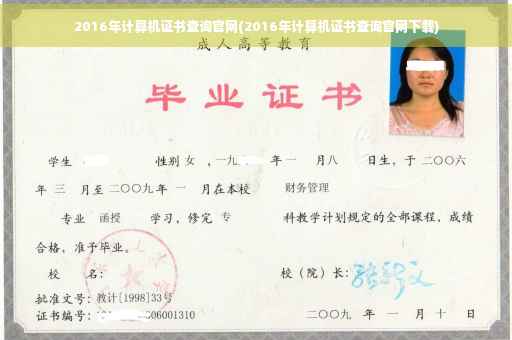 2016年计算机证书查询官网(2016年计算机证书查询官网下载)
成人高等教育
毕业证书
学生 性别 女 ，一九 年一 月八 日生，于二〇〇六
年 三 月至二〇〇九年 一 月在本校 财务管理
专业 函授 学习，修完 专 科教学计划规定的全部课程，成绩
合格，准予毕业。
校 名： 校（院）长：
批准文号：教计[1998]33号
证书编号： 06001310 二〇〇九 年 一 月 十 日